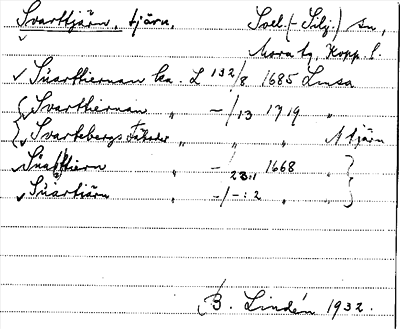 Svarttjärn, tjärn. Soll.(-Silj.) sn,
Mora tg, Kopp. l.
Suarttiernan ka. L 132/8 1685 Lmsa
Svarttiernan " -/13 1719 "
Svartsbergs " " " N tjärn
Suarttiern " -/23:1 1668 "
Suartiärn " -/-:2 " "
B. Lindén 1932.